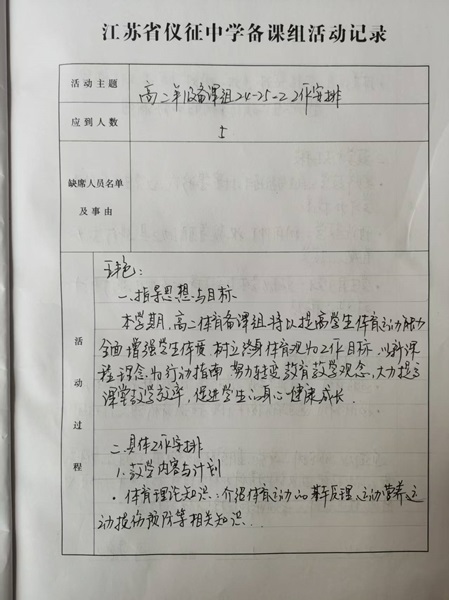 江苏省仪征中学备课组活动记录
活动主题
高二年级备课组24-25-2工作安排
应到人数
5
缺席人员名单
及事由
活动过程
王艳：
一、指导思想与目标
本学期，高二体育备课组将以提高学生体育运动能力
全面增强学生体质 树立终身体育观为工作目标，以新课
程理念为行动指南 努力转变教育教学观念，大力提高
课堂教学效率，促进学生的身心健康成长．
二、具体工作安排
1.教学内容与计划
·体育理论知识：介绍体育运动的基本原理、运动营养、运
动损伤预防等相关知识．